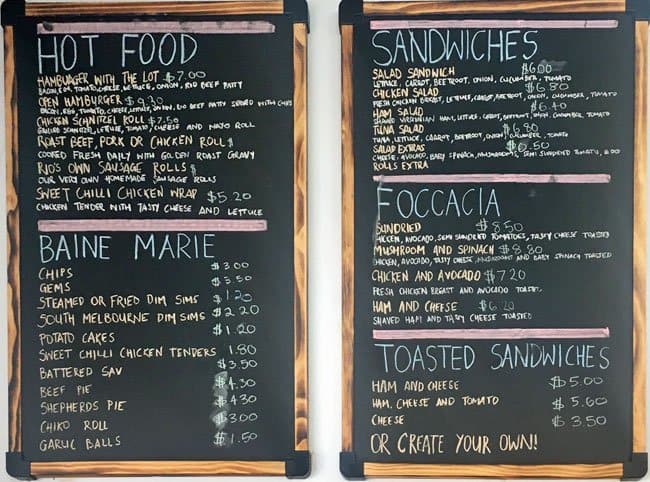 HOT FOOD
HAMBURGER WITH THE LOT $7.00
BACON, EGG, TOMATO, CHEESE, LETTUCE, ONION, RIO BEEF PATTY
OPEN HAMBURGER $9.20
BACON, EGG, TOMATO, CHEESE, LETTUCE, ONION, RIO BEEF PATTY SERVED WITH CHIPS
CHICKEN SCHNITZEL ROLL $7.50
GARLIC SCHNITZEL, LETTUCE, TOMATO, CHEESE AND MAYO ROLL
ROAST BEEF, PORK OR CHICKEN ROLL $
COOKED FRESH DAILY WITH GOLDEN ROAST GRAVY
RIO'S OWN SAUSAGE ROLLS $
OUR VERY OWN HOMEMADE SAUSAGE ROLLS
SWEET CHILLI CHICKEN WRAP $5.20
CHICKEN TENDER WITH TASTY CHEESE AND LETTUCE
BAINE MARIE
CHIPS $3.00
GEMS $3.50
STEAMED OR FRIED DIM SIMS $1.20
SOUTH MELBOURNE DIM SIMS $2.20
POTATO CAKES $1.20
SWEET CHILLI CHICKEN TENDERS 1.80
BATTERED SAV $3.50
BEEF PIE $4.30
SHEPHERDS PIE $4.30
CHIKO ROLL $3.00
GARLIC BALLS $1.50
SANDWICHES
SALAD SANDWICH $6.00
LETTUCE, CARROT, BEETROOT, ONION, CUCUMBER, TOMATO
CHICKEN SALAD $6.80
FRESH CHICKEN BREAST, LETTUCE, CARROT, BEETROOT, ONION, CUCUMBER, TOMATO
HAM SALAD $6.40
SHAVED VIRGINIAN HAM, LETTUCE, CARROT, BEETROOT, ONION, CUCUMBER, TOMATO
TUNA SALAD $6.80
TUNA, LETTUCE, CARROT, BEETROOT, ONION, CUCUMBER, TOMATO
SALAD EXTRAS $0.50
CHEESE, AVOCADO, BABY SPINACH, MUSHROOMS, SEMI SUNDRIED TOMATO, EGG
ROLLS EXTRA
FOCCACIA
SUNDRIED $8.50
CHICKEN, AVOCADO, SEMI SUNDRIED TOMATOES, TASTY CHEESE TOASTED
MUSHROOM AND SPINACH $8.80
CHICKEN, AVOCADO, TASTY CHEESE, MUSHROOMS AND BABY SPINACH TOASTED
CHICKEN AND AVOCADO $7.20
FRESH CHICKEN BREAST AND AVOCADO TOASTED
HAM AND CHEESE $6.20
SHAVED HAM AND TASTY CHEESE TOASTED
TOASTED SANDWICHES
HAM AND CHEESE $5.00
HAM, CHEESE AND TOMATO $5.60
CHEESE $3.50
OR CREATE YOUR OWN!